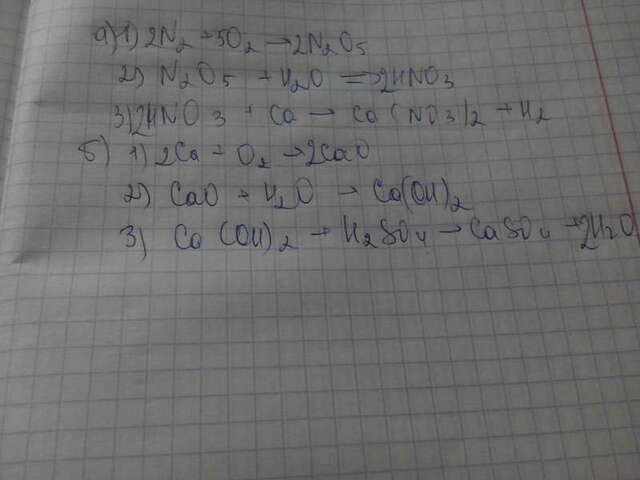 а) 1) 2N2 + 5O2 → 2N2O5
2) N2O5 + H2O ⇒ 2HNO3
3) 2HNO3 + Ca → Ca(NO3)2 + H2
б) 1) 2Ca + O2 → 2CaO
2) CaO + H2O → Ca(OH)2
3) Ca(OH)2 + H2SO4 → CaSO4 + 2H2O